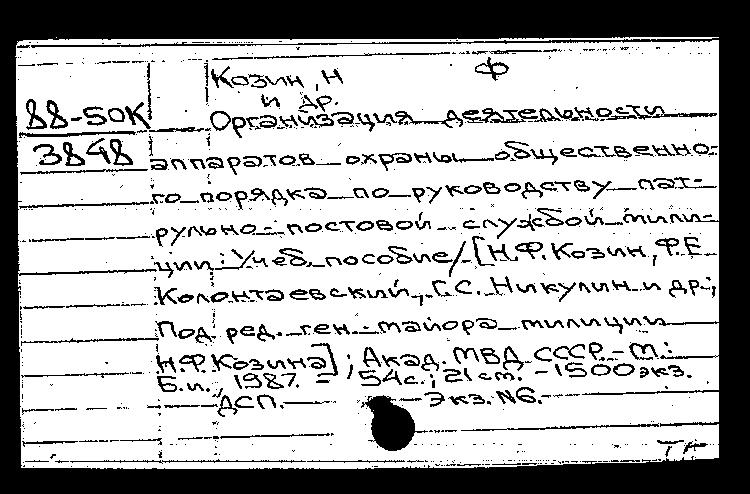 Козин, Н Ф
и др.
88-50К Организация деятельности
3848 аппаратов охраны общественно-
го порядка по руководству пат-
рульно-постовой службой мили-
ции: Учеб. пособие / [Н.Ф. Козин, Ф.Е
Колонтаевский, Г.С. Никулин и др.;
Под ред. ген.-майора милиции
Н.Ф. Козина]; Акад. МВД СССР. - М.:
Б.и., 1987. - 54с.; 21 cm. - 1500 экз.
ДСП. Экз. N6.